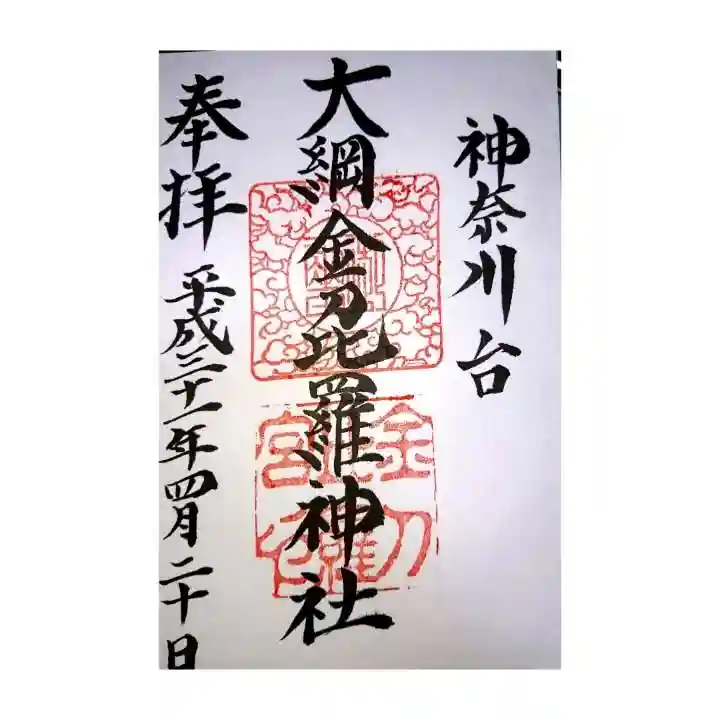 神奈川台
大綱金刀比羅神社
奉拝
平成三十一年四月二十日
金刀
宮